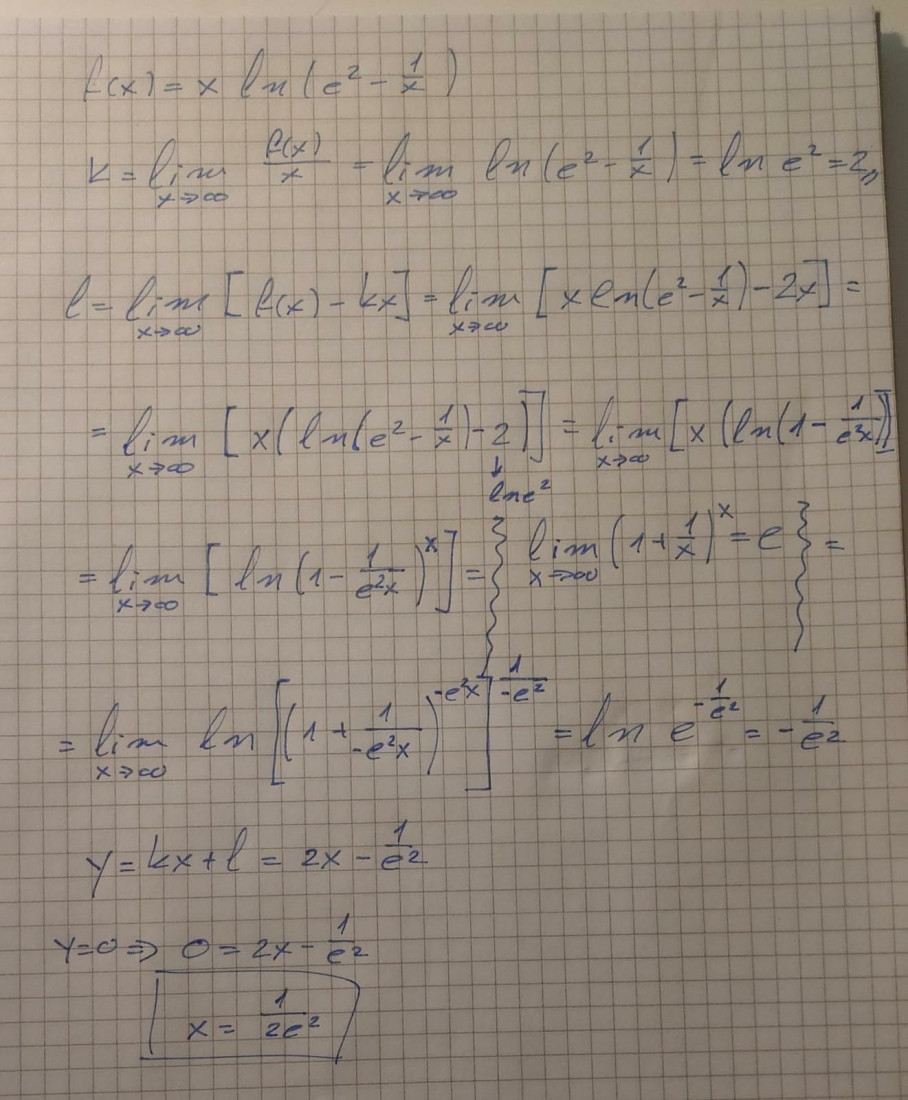 f(x) = x ln(e² - 1/x)
k = lim x→∞ f(x)/x = lim x→∞ ln(e² - 1/x) = ln e² = 2,,
l = lim x→∞ [f(x) - kx] = lim x→∞ [x ln(e² - 1/x) - 2x] =
= lim x→∞ [x(ln(e² - 1/x) - 2)] = lim x→∞ [x(ln(1 - 1/e²x))]
↓
ln e²
= lim x→∞ [ln(1 - 1/e²x)^x] = { lim x→∞ (1 + 1/x)^x = e } =
= lim x→∞ ln[(1 + 1/-e²x)^-e²x]^1/-e² = ln e^-1/e² = -1/e²
y = kx + l = 2x - 1/e²
y=0 ⇒ 0 = 2x - 1/e²
x = 1/2e²